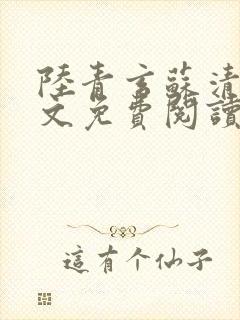 陸青言蘇清
文免費閱讀
這有个仙子